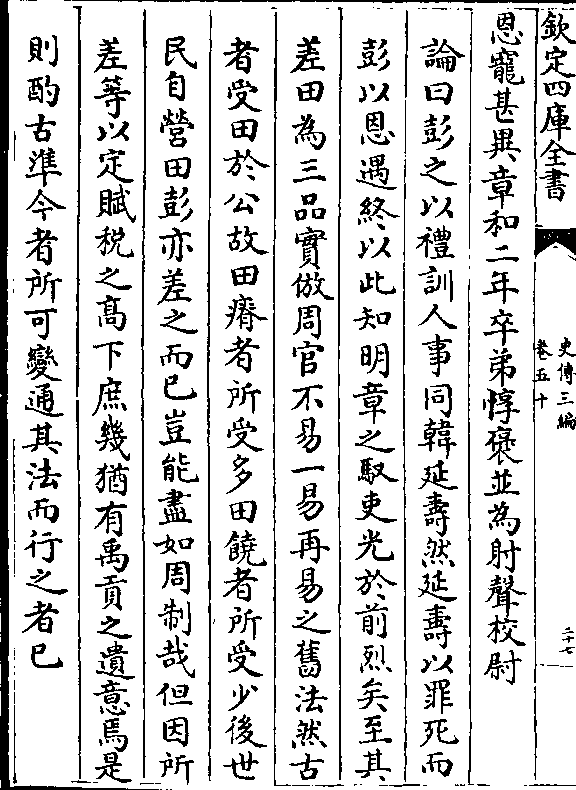 欽定四庫全書
史傳三編
卷五十
二十七
恩寵甚異章和二年卒弟惇褒並為射聲校尉
論曰彭之以禮訓人事同韓延壽然延壽以罪死而
彭以恩遇終以此知明章之馭吏光於前烈矣至其
差田為三品實倣周官不易一易再易之舊法然古
者受田於公故田瘠者所受多田饒者所受少後世
民自營田彭亦差之而已豈能盡如周制哉但因所
差等以定賦稅之髙下庶幾猶有禹貢之遺意焉是
則酌古準今者所可變通其法而行之者已